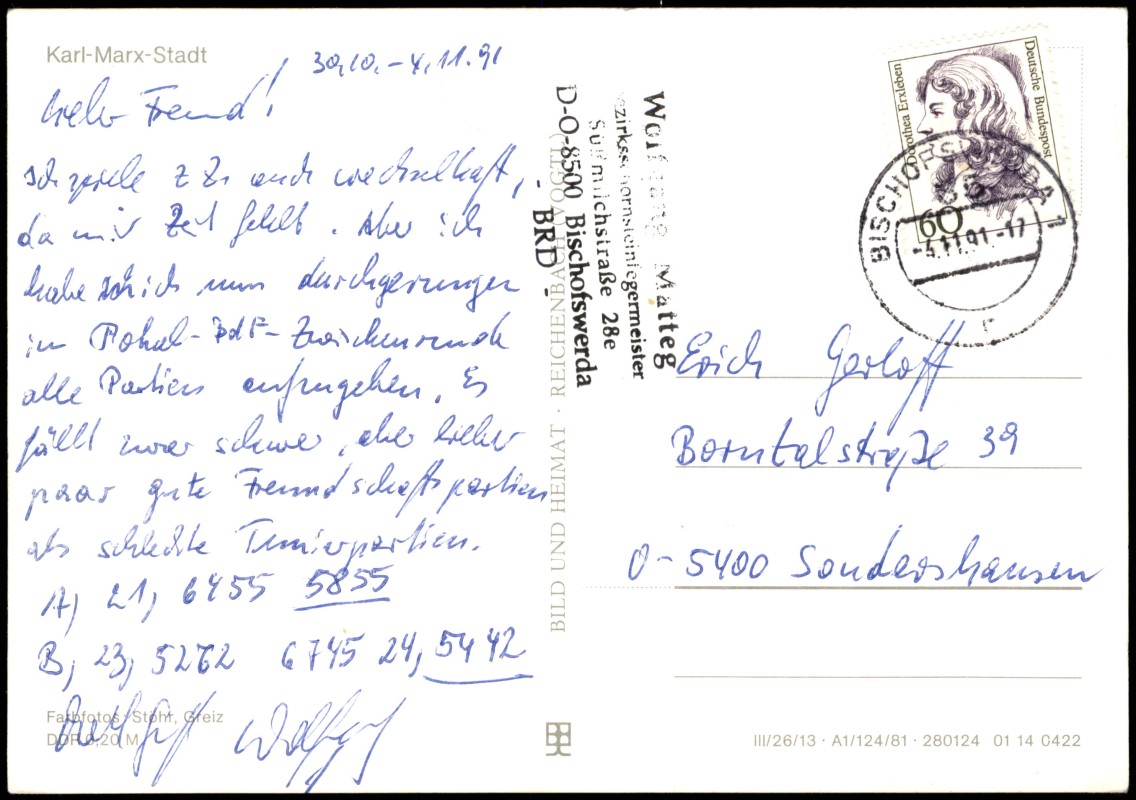 Karl-Marx-Stadt
30.10.-4.11.91
Lieber Freund!
Ich spiele z Zt auch wechselhaft,
da mir Zeit fehlt. Aber ich
habe mich nun durchgerungen
im Pokal-BdF-Zwischenrunde
alle Partien aufzugeben. Es
fällt zwar schwer, aber lieber
paar gute Freundschaftspartien
als schlechte Turnierpartien.
A, 21, 6455 5855
B, 23, 5262 6745 24, 5442
Wolfgang
Farbfotos: Stöhr, Greiz
DDR 0,20 M
BILD UND HEIMAT · REICHENBACH (VOGTL)
Wolfgang Matteg
Bezirksschornsteinfegermeister
Süßmilchstraße 28e
D-O-8500 Bischofswerda
- BRD -
Dorothea Erxleben
Deutsche Bundespost
60
BISCHOFSWERDA 1
-4.11.91.-17
r
Erich Gerloff
Borntalstraße 39
O-5400 Sondershausen
III/26/13 · A1/124/81 · 280124 01 14 0422